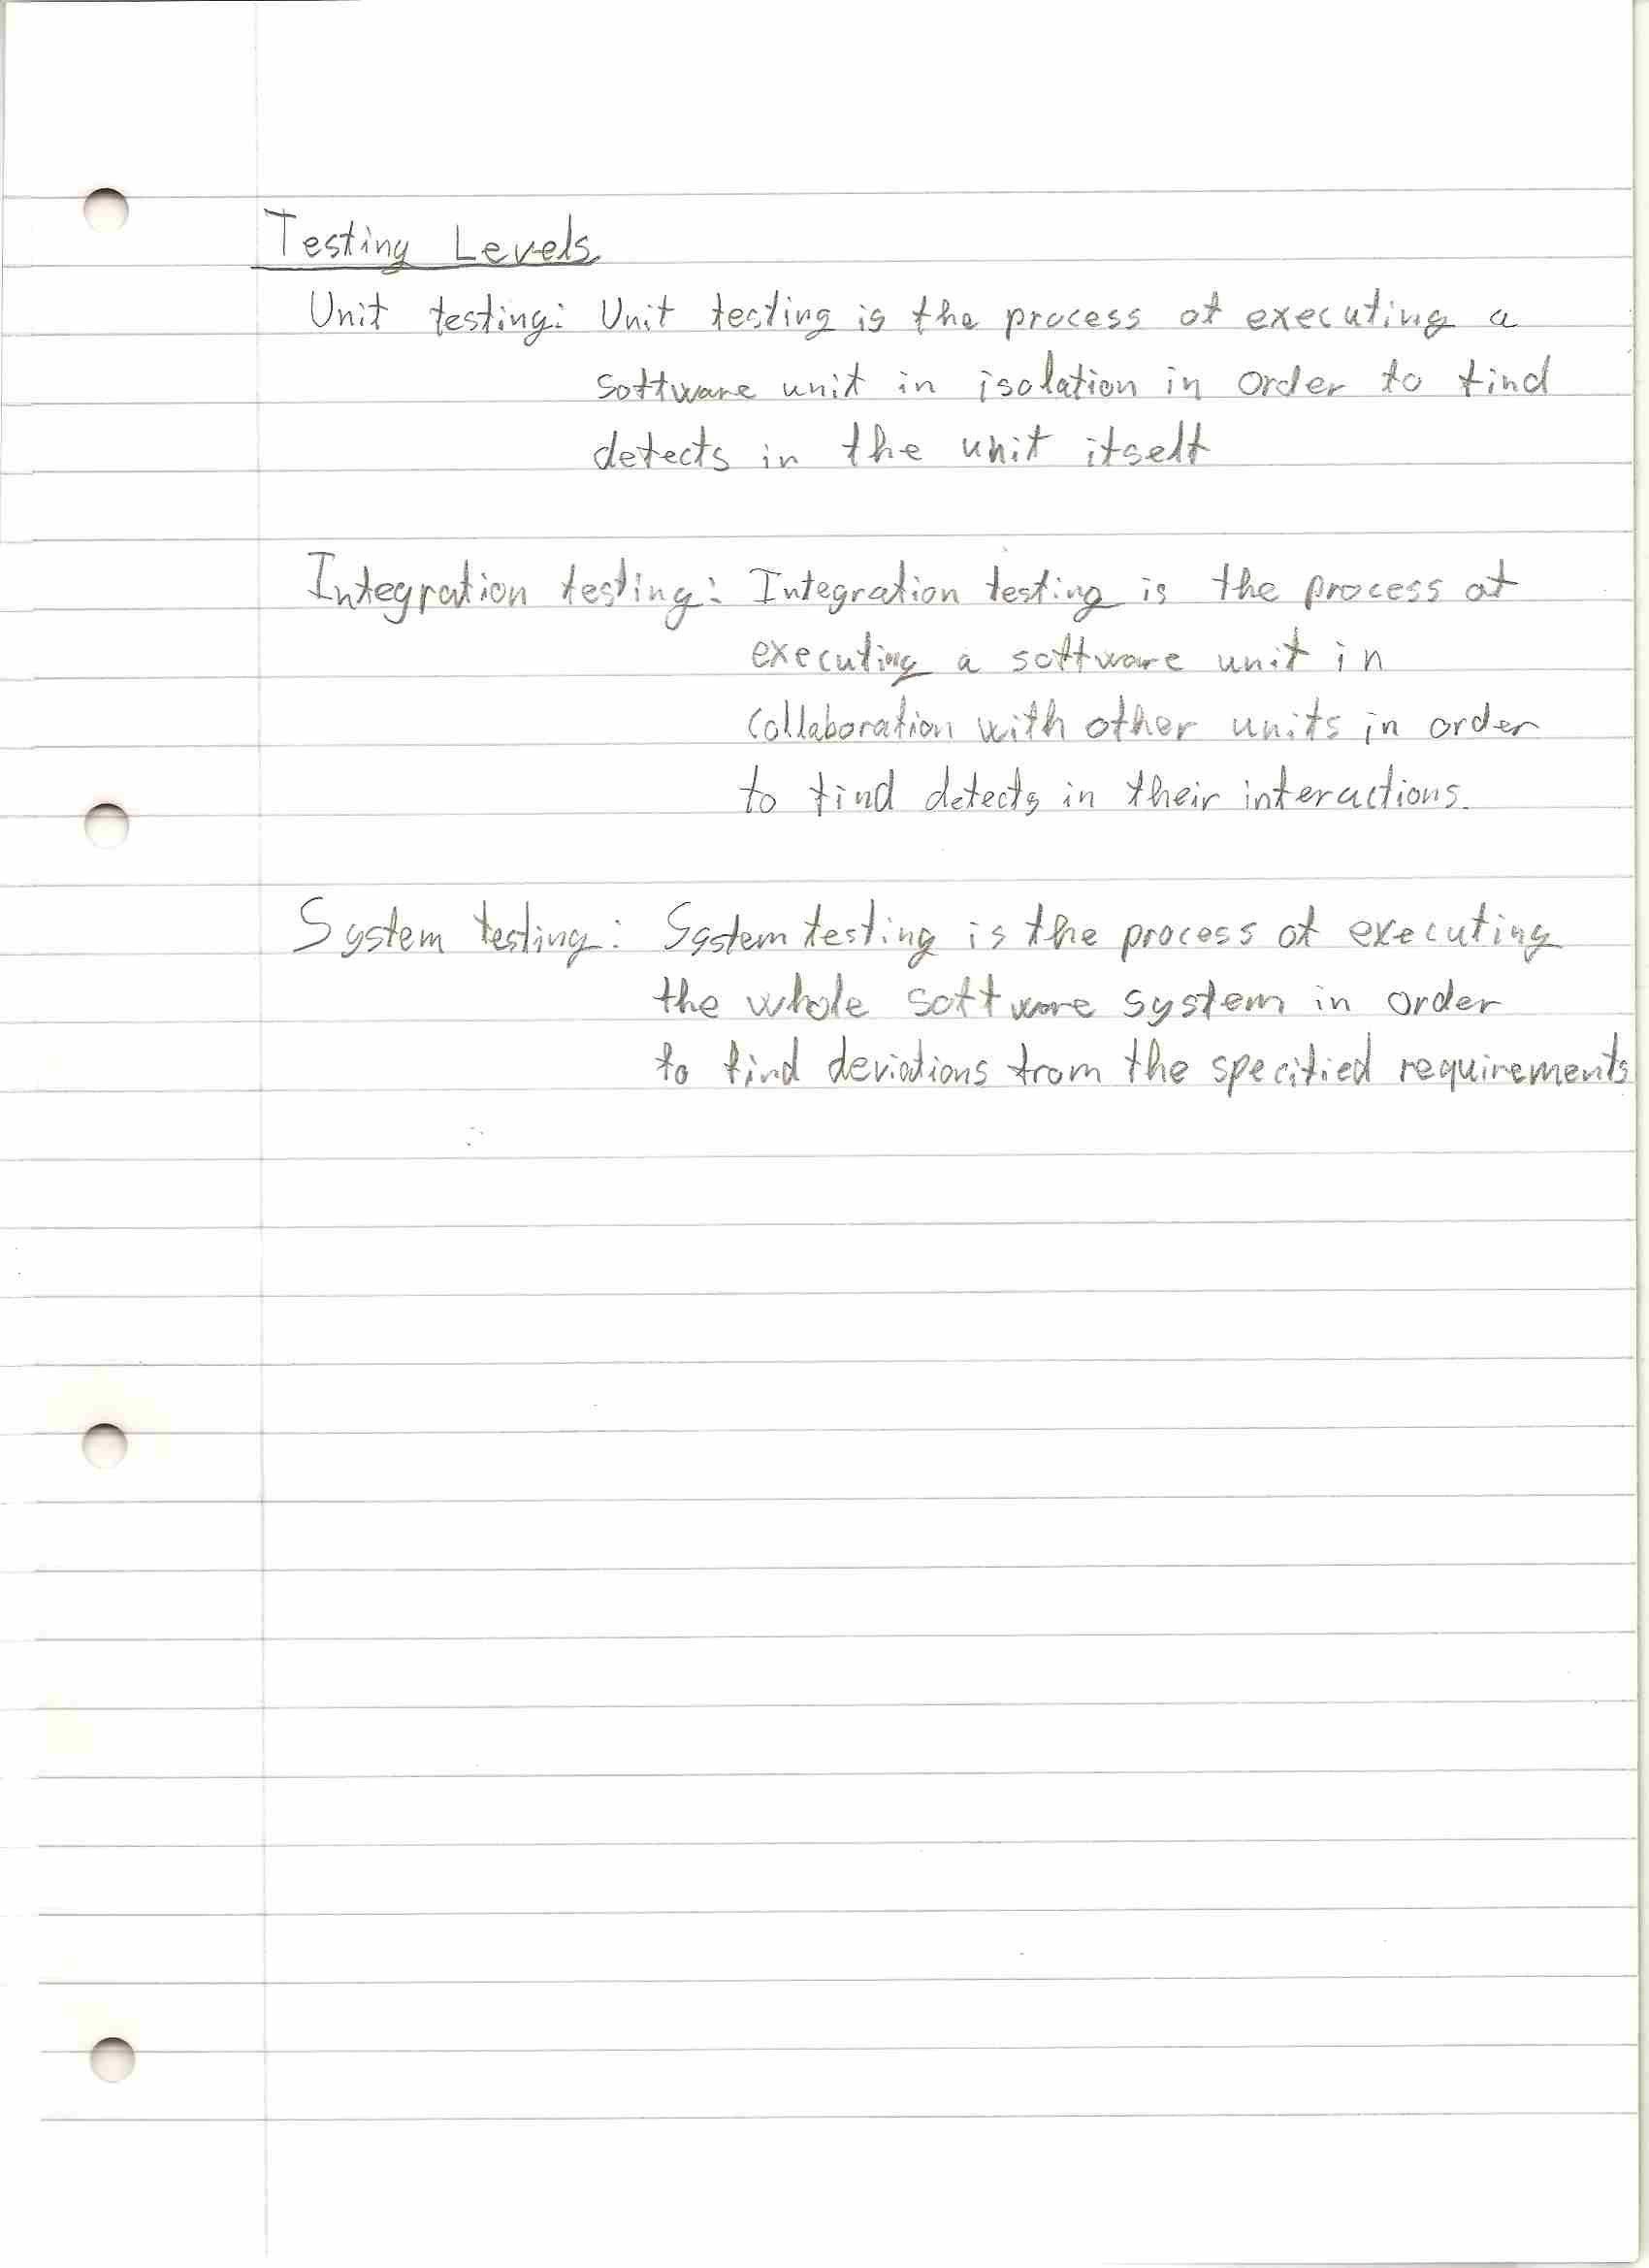 Testing Levels
Unit testing: Unit testing is the process of executing a
software unit in isolation in order to find
defects in the unit itself
Integration testing: Integration testing is the process of
executing a software unit in
collaboration with other units in order
to find defects in their interactions.
System testing: System testing is the process of executing
the whole software system in order
to find deviations from the specified requirements